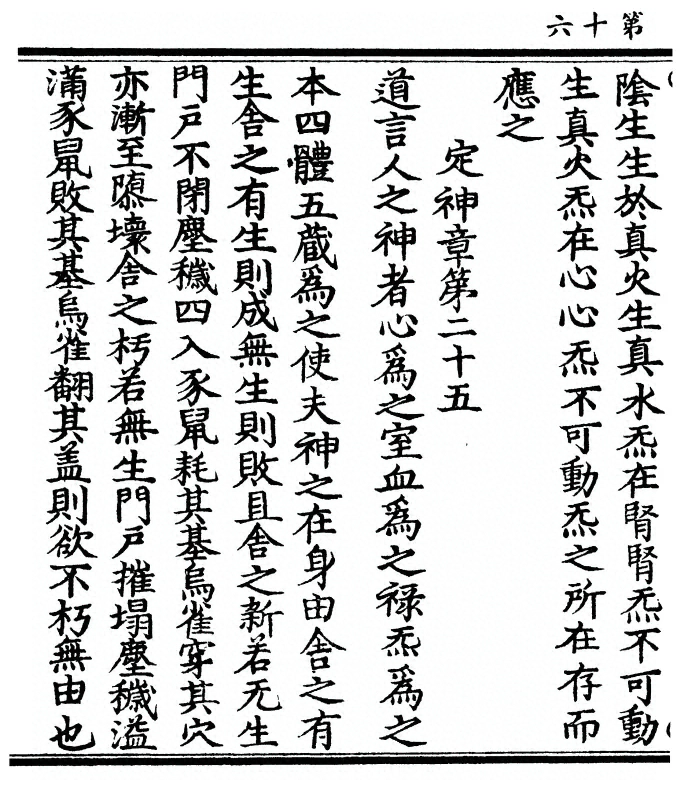 第十六
陰生生於真火生真水炁在腎腎炁不可動
生真火炁在心心炁不可動炁之所在存而
應之
定神章第二十五
道言人之神者心爲之室血爲之禄炁爲之
本四體五藏爲之使夫神之在身由舎之有
生舎之有生則成無生則敗且舎之新若无生
門戸不閉塵穢四入豕鼠耗其基烏雀穿其穴
亦漸至隳壞舎之朽若無生門戸摧塌塵穢溢
滿豕鼠敗其基烏雀翻其盖則欲不朽無由也